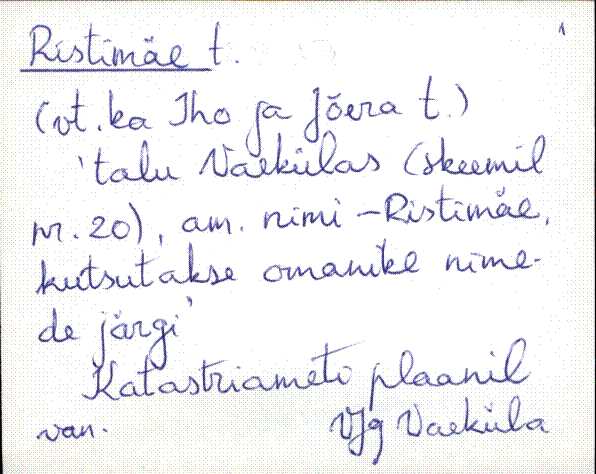 Ristimäe t. 1
(vt. ka Iho ja Jõera t.)
'talu Vaekülas (skeemil
nr. 20), am. nimi - Ristimäe,
kutsutakse omanike nime-
de järgi'
Katastriameti plaanil
van. VJg Vaeküla